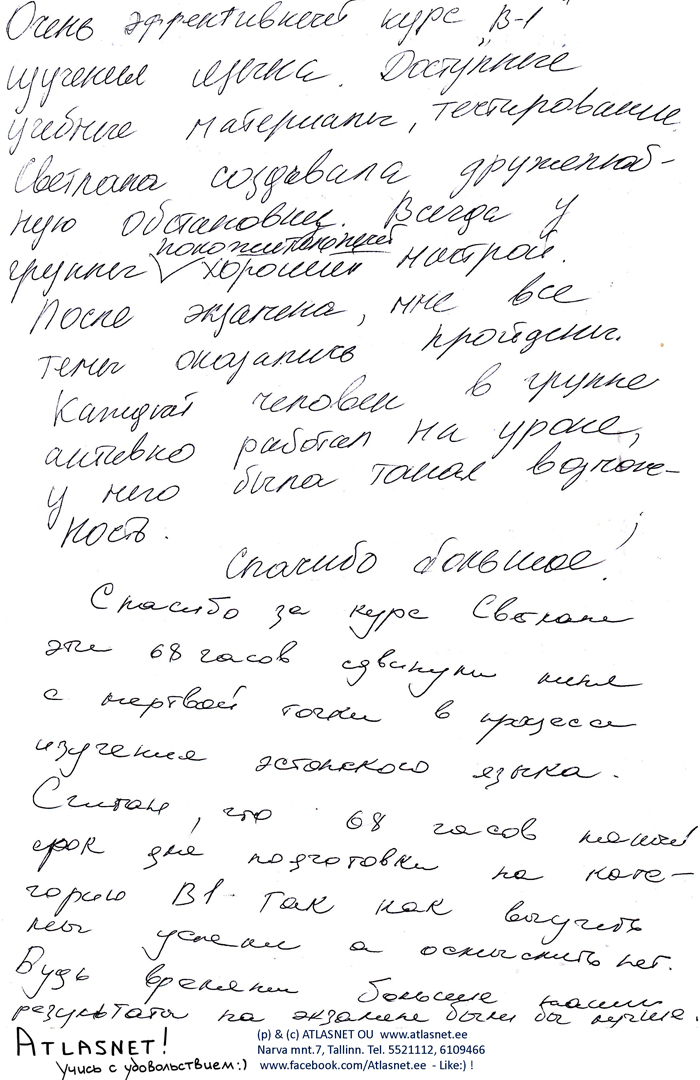 Очень эффективный курс "В-1"
изучения языка. Доступные
учебные материалы, тестирование.
Светлана создавала дружелюб-
ную обстановку. Всегда у
положительный
группы хороший настрой.
После экзамена, мне все
темы оказались пройдены.
Каждый человек в группе
активно работал на уроке,
у него была такая возмож-
ность.
Спасибо большое!
Спасибо за курс Светлане
эти 68 часов сдвинули меня
с мертвой точки в процессе
изучения эстонского языка.
Считаю, что 68 часов малый
срок для подготовки на кате-
горию В1. Так как выучить
мы успели а осмыслить нет.
Будь времени больше наши
результаты на экзамене были бы лучше.
ATLASNET!
Учись с удовольствием:)
(p) & (c) ATLASNET OU www.atlasnet.ee
Narva mnt.7, Tallinn. Tel. 5521112, 6109466
www.facebook.com/Atlasnet.ee - Like:) !